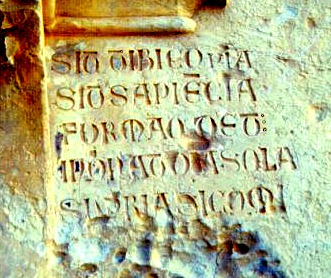 SIT TIBI COPIA
SIT SAPIĒCIA
FORMAQ DET᛬
INQINAT OĪA SOLA
SUPERBIA SI COMI